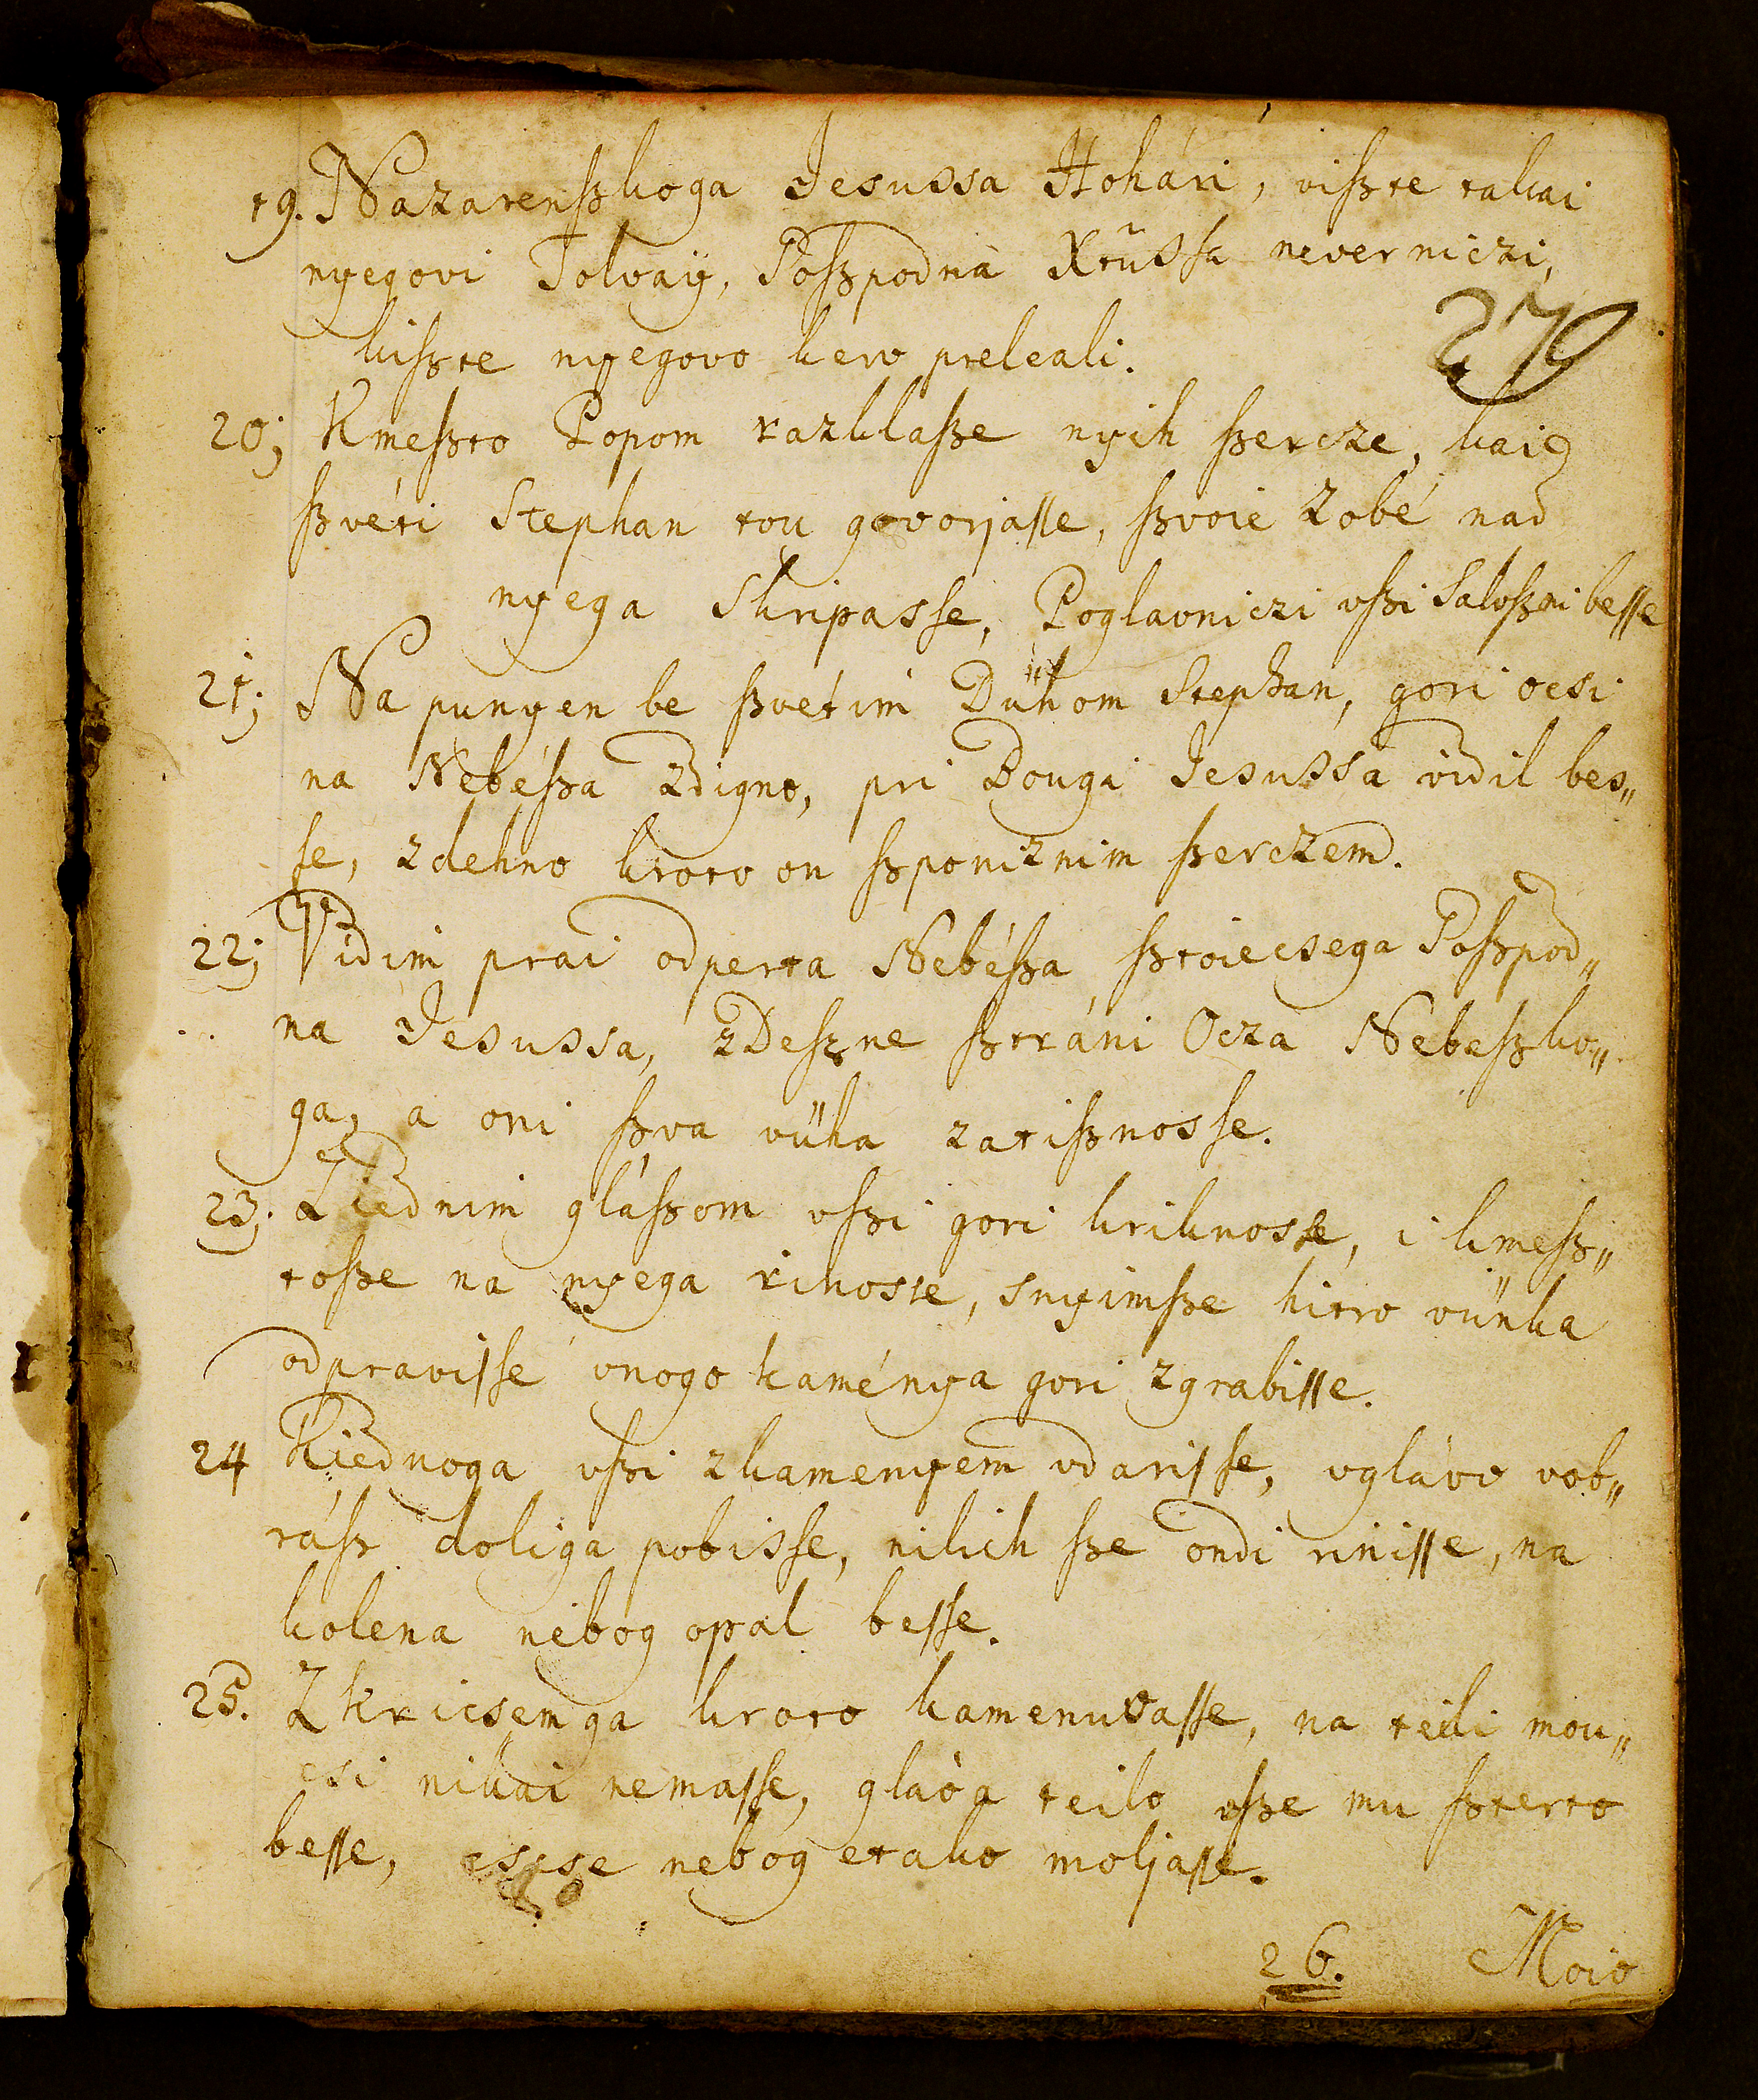 19. Nazarenßkoga Jesussa Hohári, vißte takai
nyegovi Tolvaÿ, Goßpodna Xrũssa neverniczi,
270
kißte nyegovo kerv preleali.
20; Kmeßto Popom razklaße nyih ßercze, kaie
ßvéti Stephan tou govorjasse, ßvoie Zobé nad
nyega Skripasse, Poglavniczi vßi Saloßni besse
21; Napunyen be ßvétim Dühom Stephan, gori ocsi
na Nebéßa Zdigno, pri Bougi Jesussa vidil bes„
se, zdehno kroto on ßponiznim ßerczem.
22; Vidim prai odperta Nebéßa ßtoiecsega Goßpod„
na Jesussa, zDeßne ßtráni Ocza Nebeßko„
ga, a oni ßva vüha zatißnosse.
23. Ziednim gláßom vßi gori kriknosse, i kmeß„
toße na nyega rinosse, snyimße hitro vünka
odpravisse vnogo kaményа gori zgrabisse.
24 Kiednoga vßi zkamenyem vdarisse, vglávo vob„
ráß doliga pobisse, nikih ße ondi rinisse, na
kolena nebog opal besse.
25. Zkricsemga kroto kamenuvasse, na teili mou„
csi nikai nemasse, gláva teilo vße mu ßterto
besse, escse nebog etako moljasse.
26. Moio